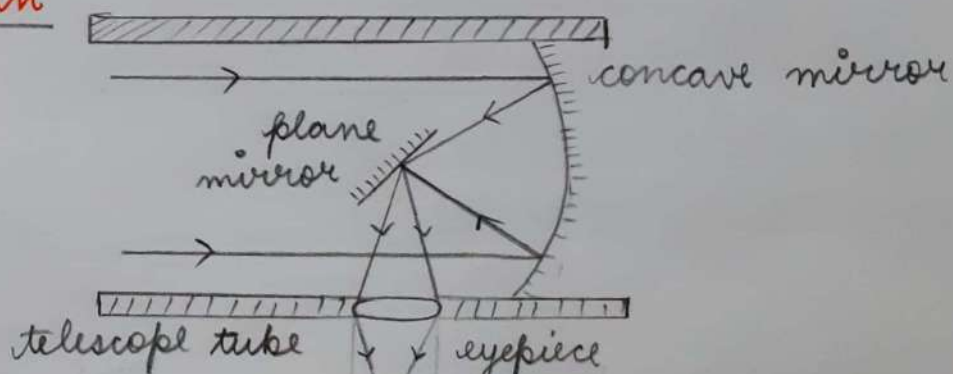 concave mirror
plane
mirror
telescope tube
eyepiece